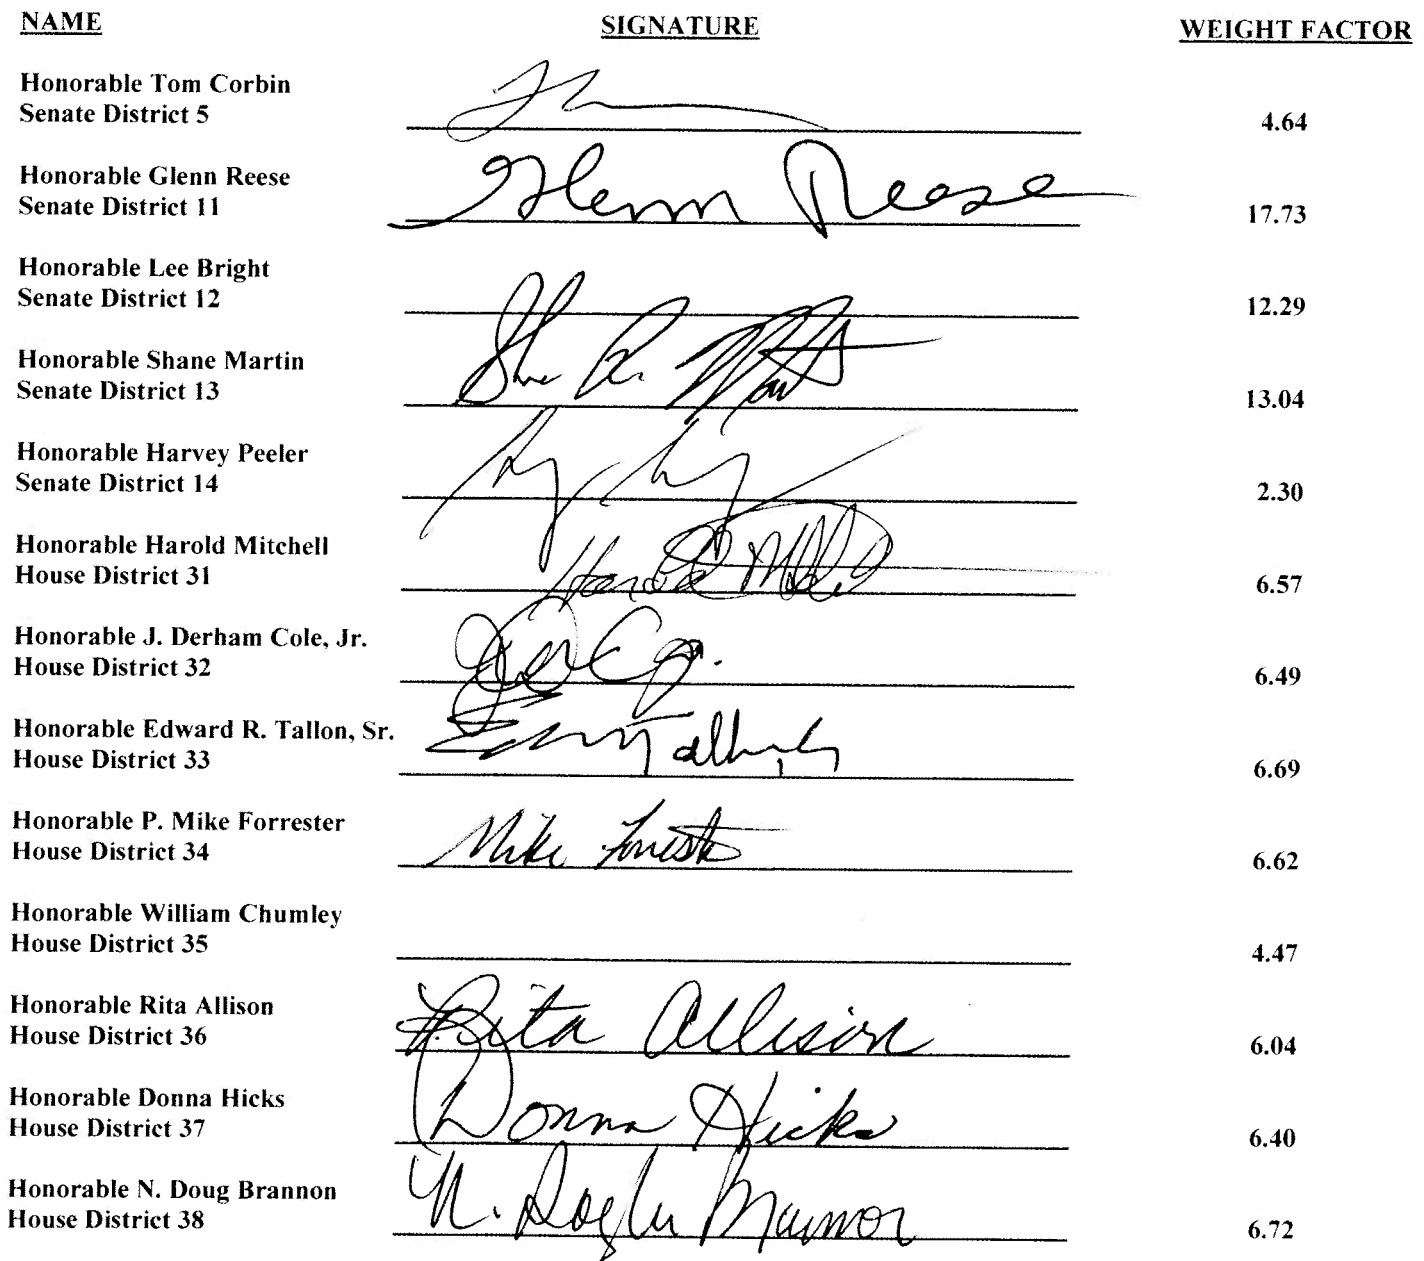 NAME SIGNATURE WEIGHT FACTOR
Honorable Tom Corbin
Senate District 5 4.64
Honorable Glenn Reese Glenn Reese
Senate District 11 17.73
Honorable Lee Bright
Senate District 12 12.29
Honorable Shane Martin
Senate District 13 13.04
Honorable Harvey Peeler
Senate District 14 2.30
Honorable Harold Mitchell
House District 31 Harold 6.57
Honorable J. Derham Cole, Jr.
House District 32 6.49
Honorable Edward R. Tallon, Sr.
House District 33 6.69
Honorable P. Mike Forrester
House District 34 Mike Forrester 6.62
Honorable William Chumley
House District 35 4.47
Honorable Rita Allison
House District 36 Rita Allison 6.04
Honorable Donna Hicks
House District 37 Donna Hicks 6.40
Honorable N. Doug Brannon
House District 38 6.72